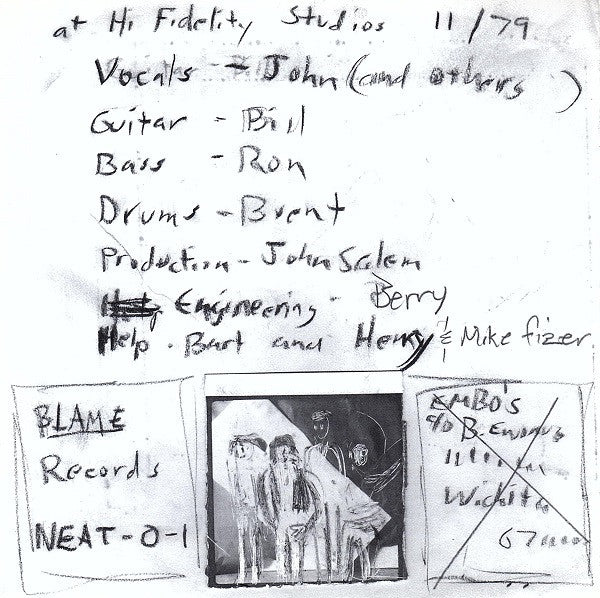 at Hi Fidelity Studios 11/79
Vocals - John (and others)
Guitar - Bill
Bass - Ron
Drums - Brent
Production - John Salem
Engineering - Berry
Help - Bart and Henry & Mike fizer
BLAME
Records
NEAT-O-1
EMBO'S
c/o B.
Wichita
67